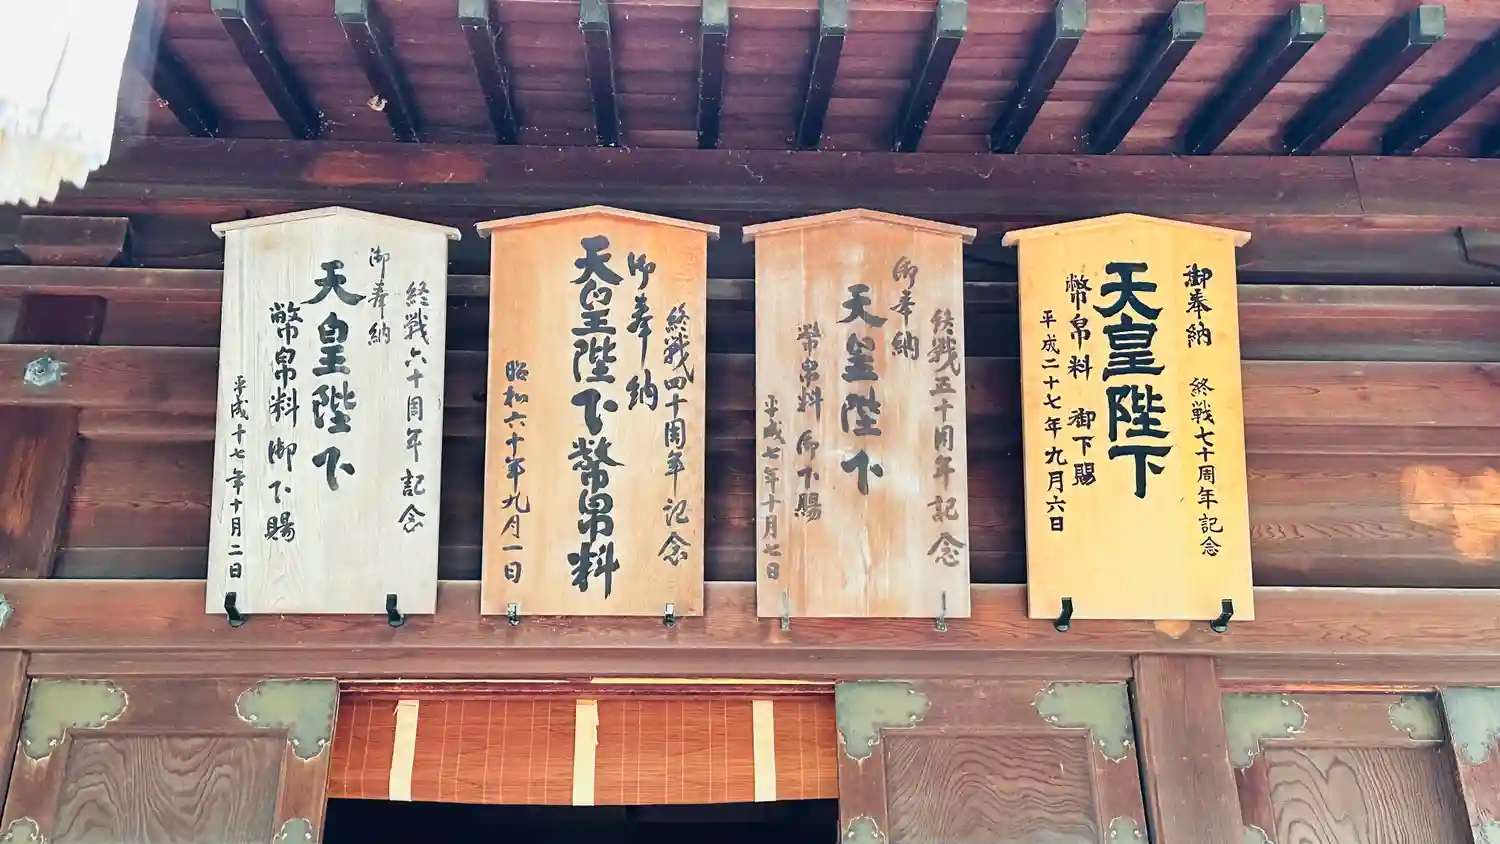 御奉納
終戦七十周年記念
天皇陛下
幣帛料 御下賜
平成二十七年九月六日
終戦五十周年記念
御奉納
天皇陛下
幣帛料 御下賜
平成七年十月七日
終戦四十周年記念
御奉納
天皇陛下幣帛料
昭和六十年九月一日
終戦六十周年記念
御奉納
天皇陛下
幣帛料御下賜
平成十七年十月二日